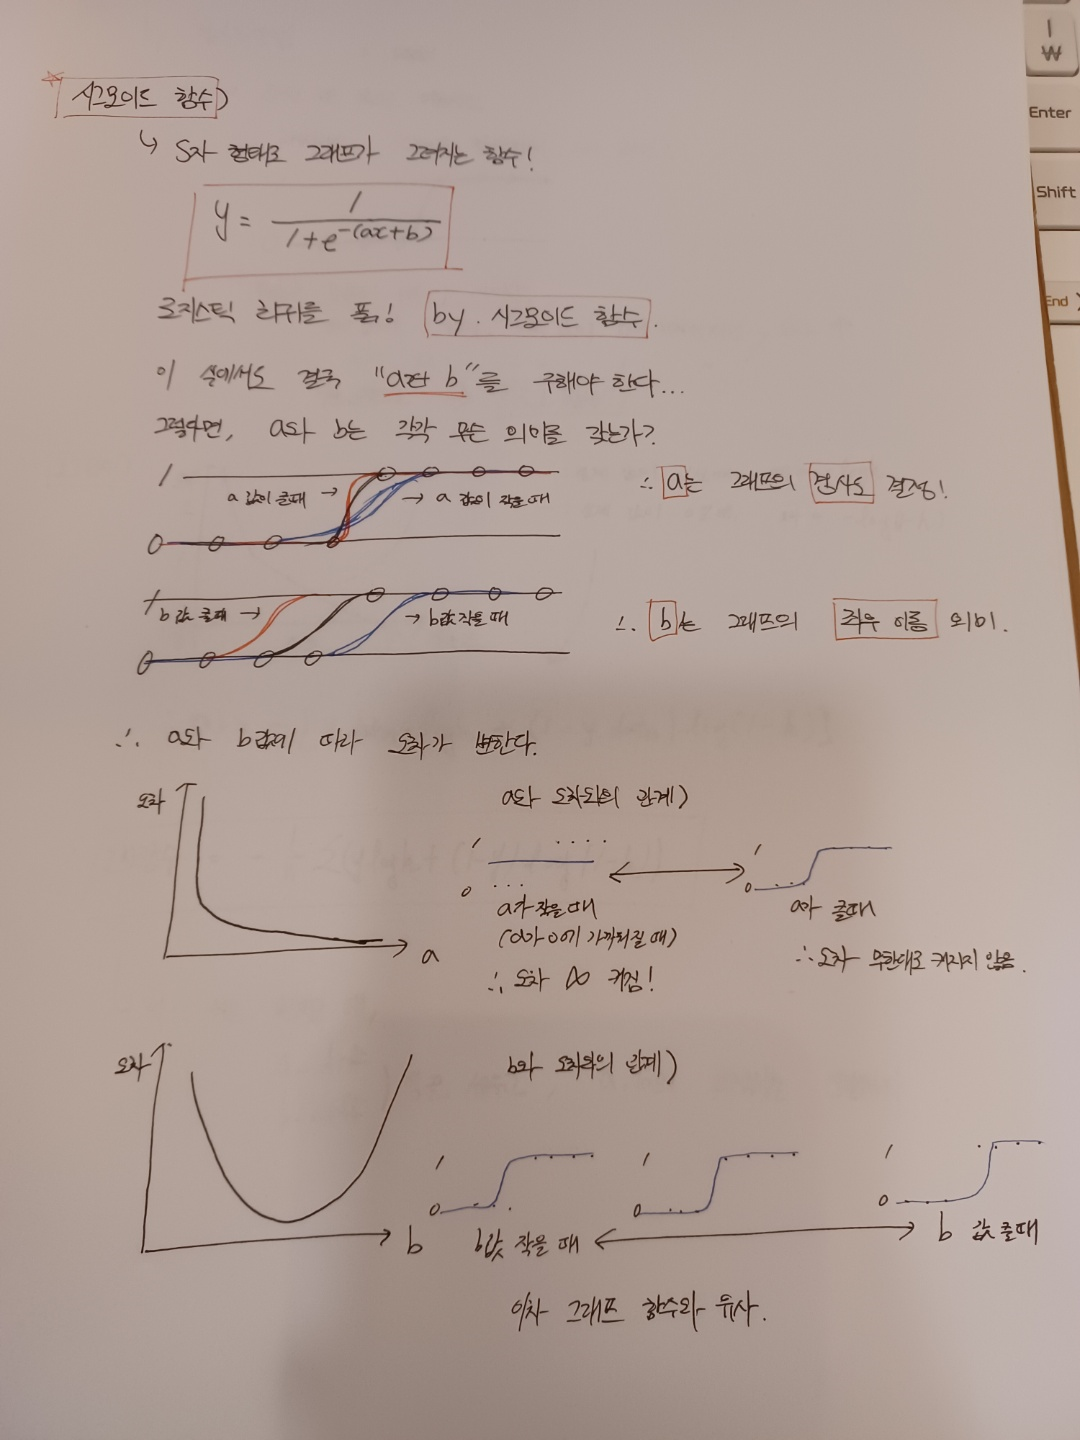 시그모이드 함수)
↳ S자 형태로 그래프가 그려지는 함수!
y = 1 / (1+e^-(ax+b))
로지스틱 회귀를 풂! by. 시그모이드 함수.
이 식에서도 결국 "a와 b"를 구해야 한다...
그렇다면, a와 b는 각각 무슨 의미를 갖는가?
1
a 값이 클때 → → a 값이 작을 때
∴ a는 그래프의 경사도 결정!
0
1
b값 클때 → → b값 작을 때
∴ b는 그래프의 좌우 이동 의미.
0
∴ a와 b값에 따라 오차가 변한다.
오차
a
a와 오차와의 관계)
1
0
a가 작을 때
(a가 0에 가까워질 때)
∴ 오차 ∞ 커짐!
1
0
a가 클때
∴ 오차 무한대로 커지지 않음.
오차
b
b와 오차와의 관계)
1
0
1
0
1
0
b값 작을 때 ↔ b 값 클때
이차 그래프 함수와 유사.
I
₩
Enter
Shift
End